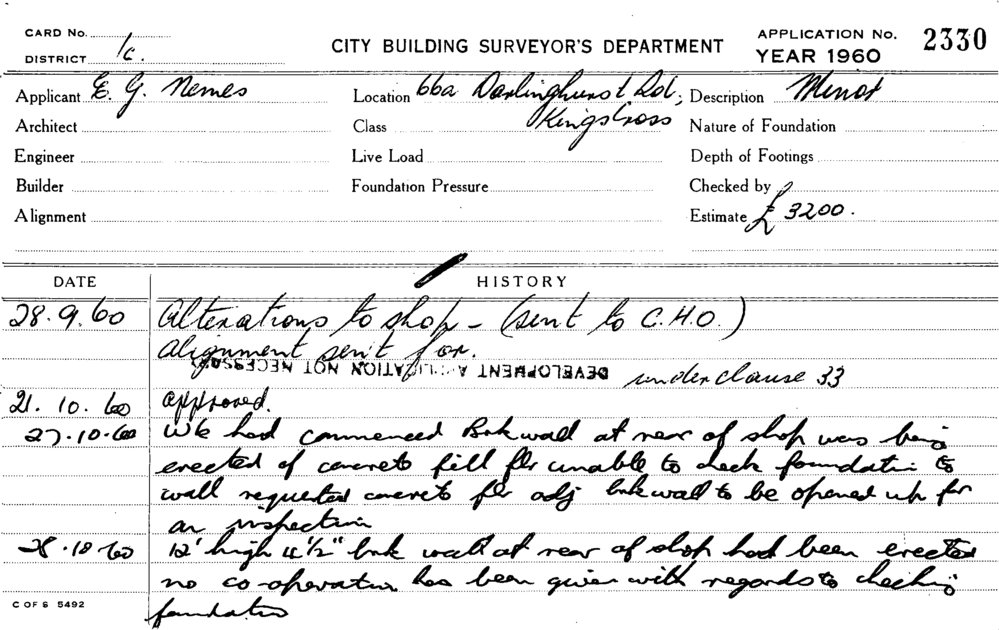 CARD No.
DISTRICT 1c.
CITY BUILDING SURVEYOR'S DEPARTMENT
APPLICATION No. 2330
YEAR 1960
Applicant E. G. Nemes Location 66a Darlinghurst Rd, Description Minor
Kings Cross
Architect Class Nature of Foundation
Engineer Live Load Depth of Footings
Builder Foundation Pressure Checked by
Alignment Estimate £ 3200.
DATE HISTORY
28.9.60 Alterations to shop - (sent to C.H.O.)
Alignment sent for.
DEVELOPMENT APPLICATION NOT NECESSARY under clause 33
21.10.60 Approved.
27.10.60 Wk had commenced Brk wall at rear of shop was being
erected of concrete fill flr unable to check foundation to
wall requested concrete flr adj brk wall to be opened up for
an inspection
28.10.60 12' high 4 1/2" brk wall at rear of shop had been erected
no co-operation has been given with regards to checking
foundation
C OF S 5492